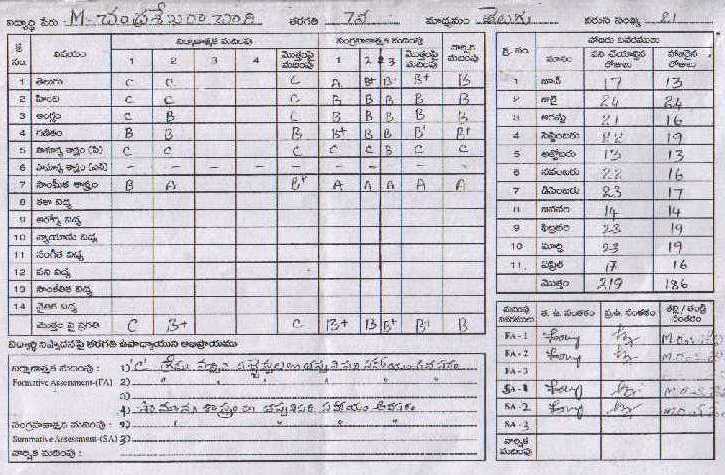 విద్యార్థి పేరు M. చంద్రశేఖరాచారి తరగతి 7వ మాధ్యమం తెలుగు వరుస సంఖ్య 21
క్ర. సం. విషయం నిర్మాణాత్మక మదింపు సంగ్రహణాత్మక మదింపు వార్షిక మదింపు
1 2 3 4 మొత్తంపై మదింపు 1 2 3 మొత్తంపై మదింపు
1 తెలుగు C C C A B+ B B+ B
2 హిందీ C C C B B B B B
3 ఆంగ్లం C B C B B B B B
4 గణితం B B B B+ B B B+ B+
5 సామాన్య శాస్త్రం (పి) C C C C C B C C
6 సామాన్య శాస్త్రం (ఎన్) - - - - - - - -
7 సాంఘిక శాస్త్రం B A B+ A A A A A
8 కళా విద్య
9 ఆరోగ్య విద్య
10 వ్యాయామ విద్య
11 సంగీత విద్య
12 పని విద్య
13 సాంకేతిక విద్య
14 నైతిక విద్య
మొత్తం పై ప్రగతి C B+ C B+ B B+ B+ B
విద్యార్థి నిష్పాదనపై తరగతి ఉపాధ్యాయుని అభిప్రాయము
నిర్మాణాత్మక మదింపు : 1) 'C'
Formative Assessment-(FA) 2)
3)
4) సామాన్య శాస్త్రం
సంగ్రహణాత్మక మదింపు : 1)
Summative Assessment-(SA) 2)
వార్షిక మదింపు :
హాజరు వివరములు
క్ర. సం. మాసం పని చేయాల్సిన రోజులు హాజరైన రోజులు
1 జూన్ 17 13
2 జులై 24 24
3 ఆగస్టు 21 16
4 సెప్టెంబరు 22 19
5 అక్టోబరు 13 13
6 నవంబరు 22 16
7 డిసెంబరు 23 17
8 జనవరి 14 14
9 ఫిబ్రవరి 23 19
10 మార్చి 23 19
11. ఏప్రిల్ 17 16
మొత్తం 219 186
మదింపు వివరములు త. ఉ. సంతకం ప్ర.ఉ. సంతకం తల్లి / తండ్రి సంతకం
FA - 1
FA - 2
FA - 3
SA - 1
SA - 2
SA - 3
వార్షిక మదింపు